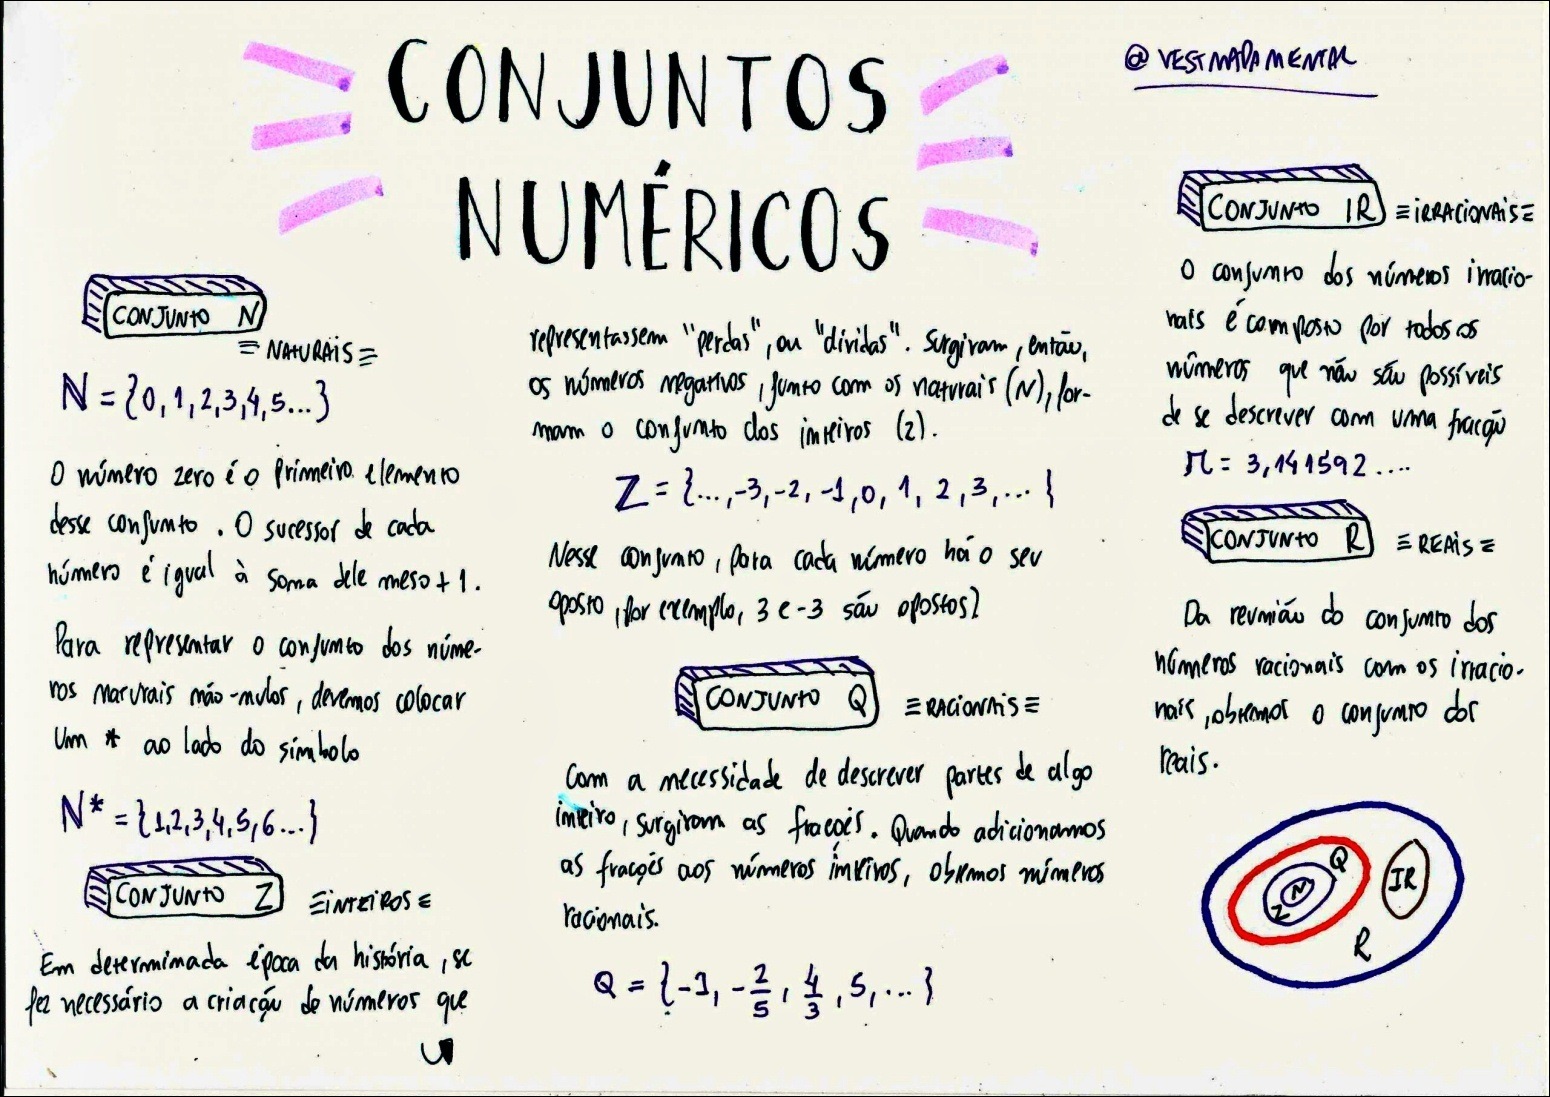 CONJUNTOS
NUMÉRICOS
@VESTMAPAMENTAL
CONJUNTO N
≡ NATURAIS ≡
N = {0, 1, 2, 3, 4, 5...}
O número zero é o primeiro elemento
desse conjunto. O sucessor de cada
número é igual à soma dele meso + 1.
Para representar o conjunto dos núme-
ros naturais não-nulos, devemos colocar
um * ao lado do símbolo
N* = {1, 2, 3, 4, 5, 6...}
CONJUNTO Z
≡ INTEIROS ≡
Em determinada época da história, se
fez necessário a criação de números que
representassem "perdas", ou "dívidas". Surgiram, então,
os números negativos, junto com os naturais (N), for-
mam o conjunto dos inteiros (Z).
Z = {..., -3, -2, -1, 0, 1, 2, 3, ...}
Nesse conjunto, para cada número há o seu
oposto, por exemplo, 3 e -3 são opostos!
CONJUNTO Q
≡ RACIONAIS ≡
Com a necessidade de descrever partes de algo
inteiro, surgiram as frações. Quando adicionamos
as frações aos números inteiros, obtemos números
racionais.
Q = {-1, -2/5, 4/3, 5, ...}
CONJUNTO IR
≡ IRRACIONAIS ≡
O conjunto dos números irracio-
nais é composto por todos os
números que não são possíveis
de se descrever com uma fração
π = 3,141592....
CONJUNTO R
≡ REAIS ≡
Da reunião do conjunto dos
números racionais com os irracio-
nais, obtemos o conjunto dos
reais.
Q
N
Z
IR
R